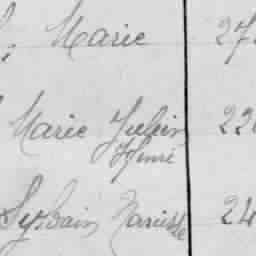 , Marie 27
Marie Julien 22
Henri
Sylvain Narcisse 24